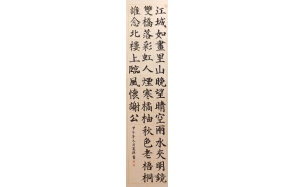 江城如畫里山晚望晴空兩水夾明鏡
雙橋落彩虹人煙寒橘柚秋色老梧桐
誰念北樓上臨風懷謝公